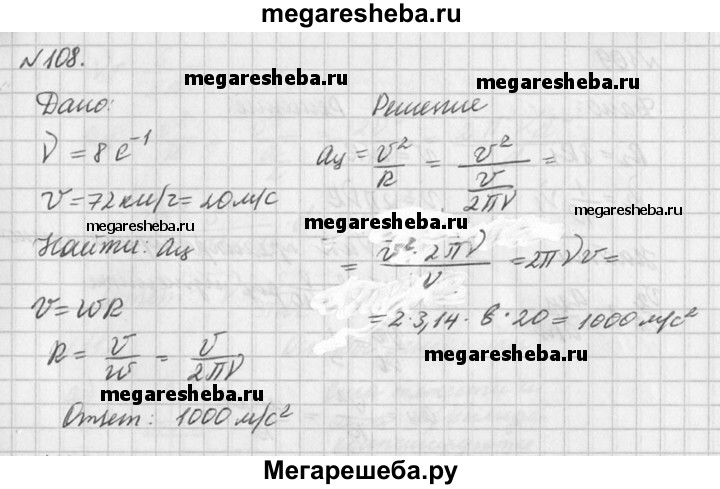 megaresheba.ru
№108.
megaresheba.ru
megaresheba.ru
Дано:
Решение
ν = 8 с⁻¹
v = 72 км/ч = 20 м/с
aц = v²/R = v²/(v/2πν) =
megaresheba.ru
megaresheba.ru
Найти: aц
= v²·2πν/v = 2πνv =
v = wR
= 2·3,14·8·20 = 1000 м/с²
R = v/w = v/2πν
megaresheba.ru
megaresheba.ru
Ответ: 1000 м/с²
Мегарешеба.ру